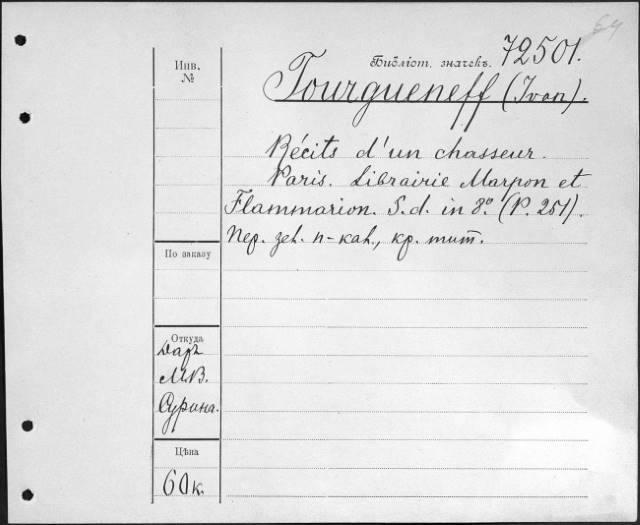 64
Библіот. значекъ. 72501.
Инв.
№
Tourgueneff (Ivan).
Récits d'un chasseur.
Paris. Librairie Marpon et
Flammarion. S.d. in 8º. (P. 251).
Пер. зел. п-кал., кр. тит.
По заказу
Откуда
Даръ
М.В.
Сурина.
Цѣна
60 к.